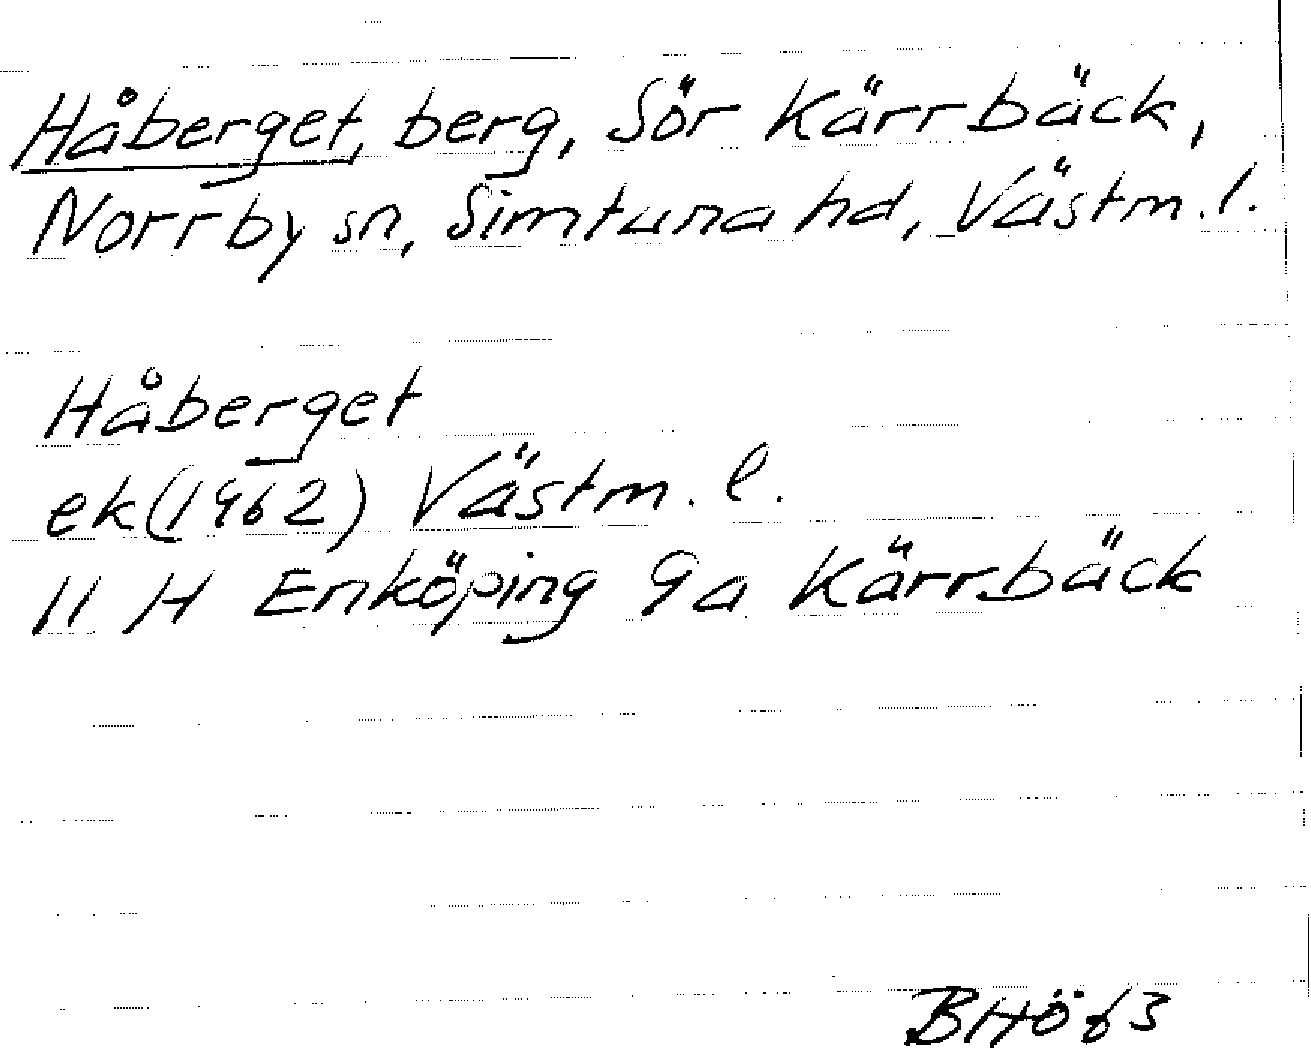 Håberget, berg, Sör Kärrbäck,
Norrby sn, Simtuna hd, Västm. l.
Håberget
ek (1962) Västm. l.
11 H Enköping 9a Kärrbäck
BHö 63